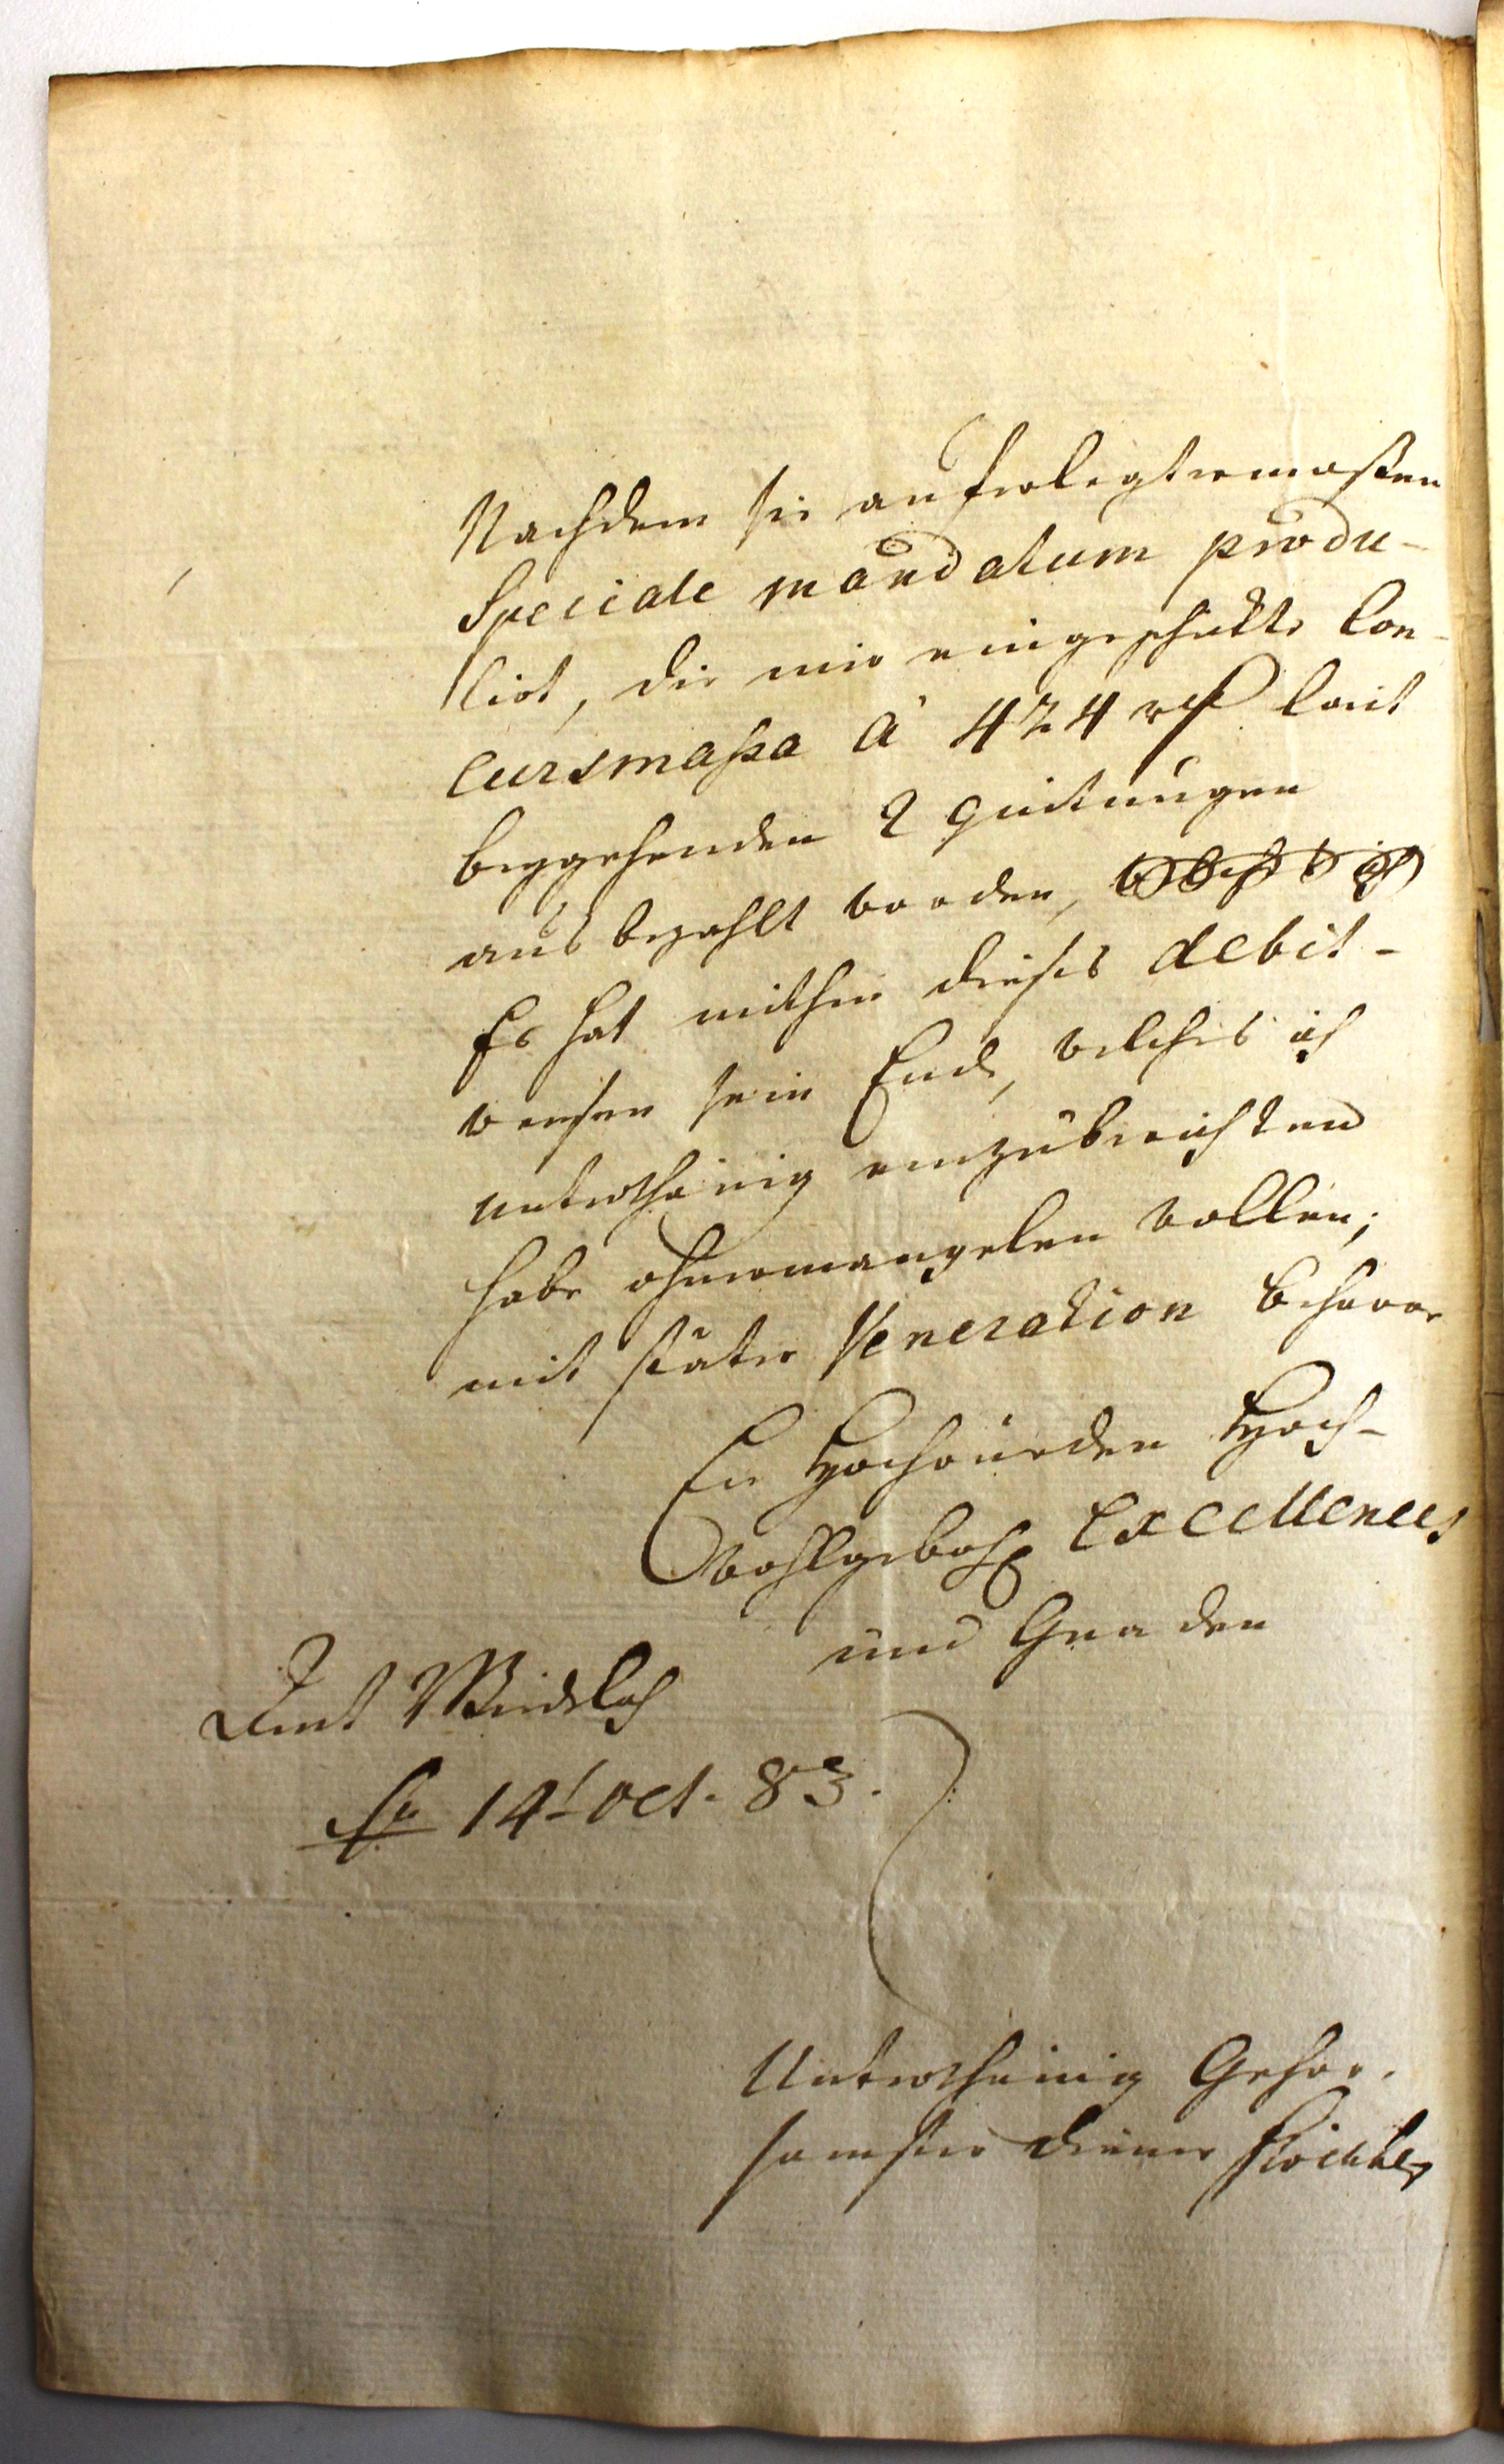 Nachdem sie auferlegtermaßen
Speciale mandatum produ-
cirt, die mir eingeschikte Con-
cursmaßa à 424 rf laut
beygehenden 2 quitungen
ausbezahlt worden,
Es hat mithin dieses debit-
weesen sein Ende, welches ich
unterthänig einzuberichten
habe ohnermangelen wollen;
mit stäter Veneration beharre
Eu Hochwürden Hoch-
wohlgebohr Excellences
und Gnaden
Amt
14t oct. 83.
Unterthänig Gehor-
samster diener